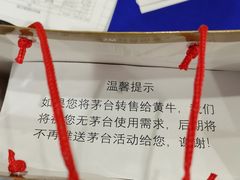 温馨提示
如果您将茅台转售给黄牛，我们
将视您无茅台使用需求，后期将
不再推送茅台活动给您，谢谢！